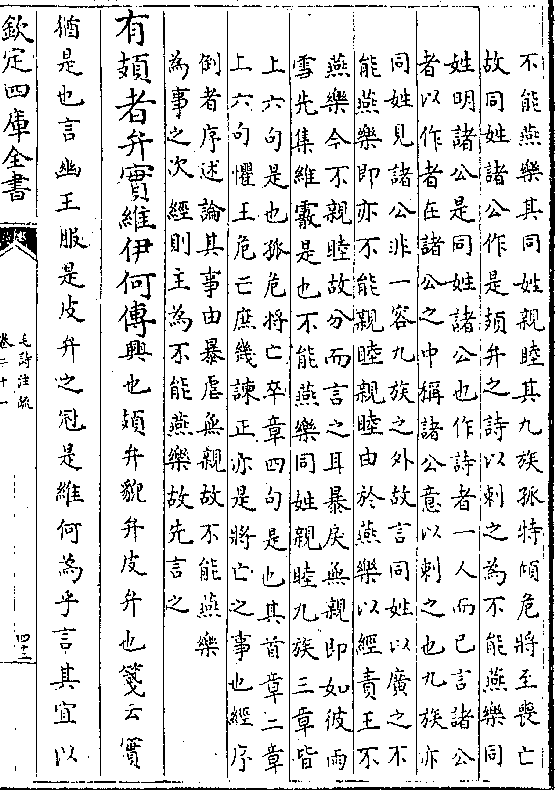 不能燕樂其同姓親睦其九族孤特傾危將至喪亡
故同姓諸公作是頍弁之詩以刺之為不能燕樂同
姓明諸公是同姓諸公也作詩者一人而已言諸公
者以作者在諸公之中稱諸公意以刺之也九族亦
同姓見諸公非一容九族之外故言同姓以廣之不
能燕樂即亦不能親睦親睦由於燕樂以經責王不
燕樂令不親睦故分而言之耳暴戾無親即如彼雨
雪先集維霰是也不能燕樂同姓親睦九族三章皆
上六句是也孤危將亡卒章四句是也其首章二章
上六句懼王危亡庶幾諫正亦是將亡之事也經序
倒者序述論其事由暴虐無親故不能燕樂
為事之次經則主為不能燕樂故先言之
有頍者弁實維伊何傳興也頍弁貌弁皮弁也箋云實
猶是也言幽王服是皮弁之冠是維何為乎言其宜以
欽定四庫全書
毛詩注疏
卷二十一
四十二